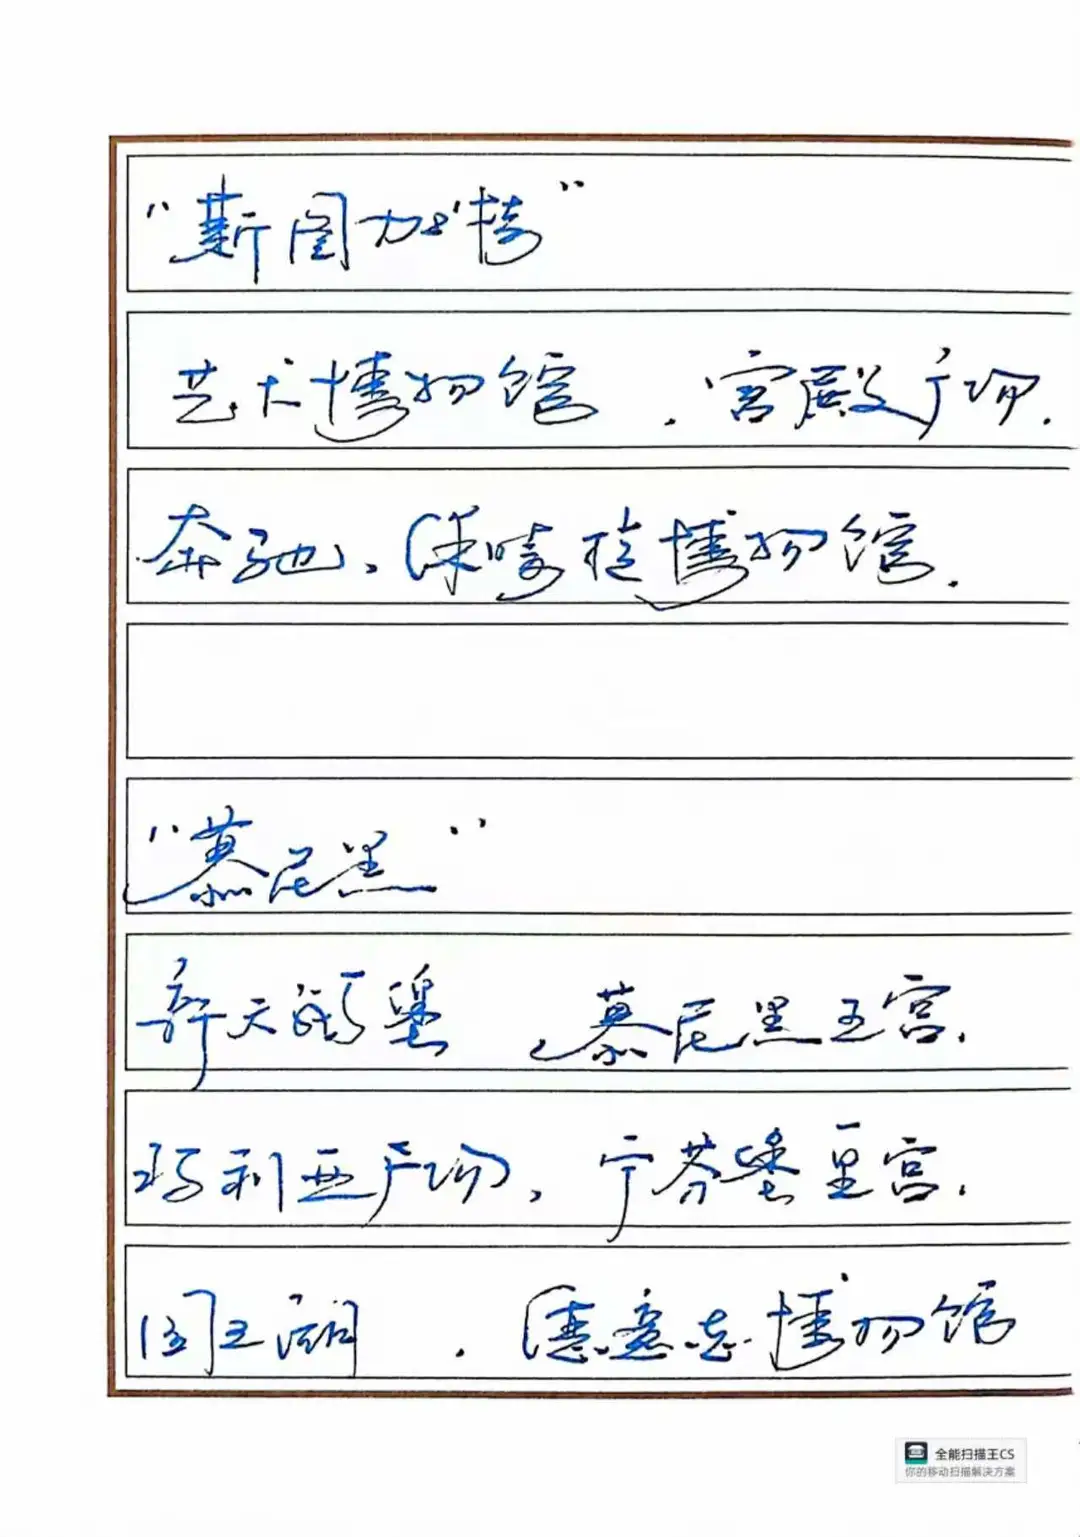 “斯图加特”
艺术博物馆.宫殿广场.
奔驰、保时捷博物馆.
“慕尼黑”
新天鹅堡、慕尼黑王宫.
玛利亚广场，宁芬堡皇宫.
国王湖.德意志博物馆
全能扫描王CS
你的移动扫描解决方案